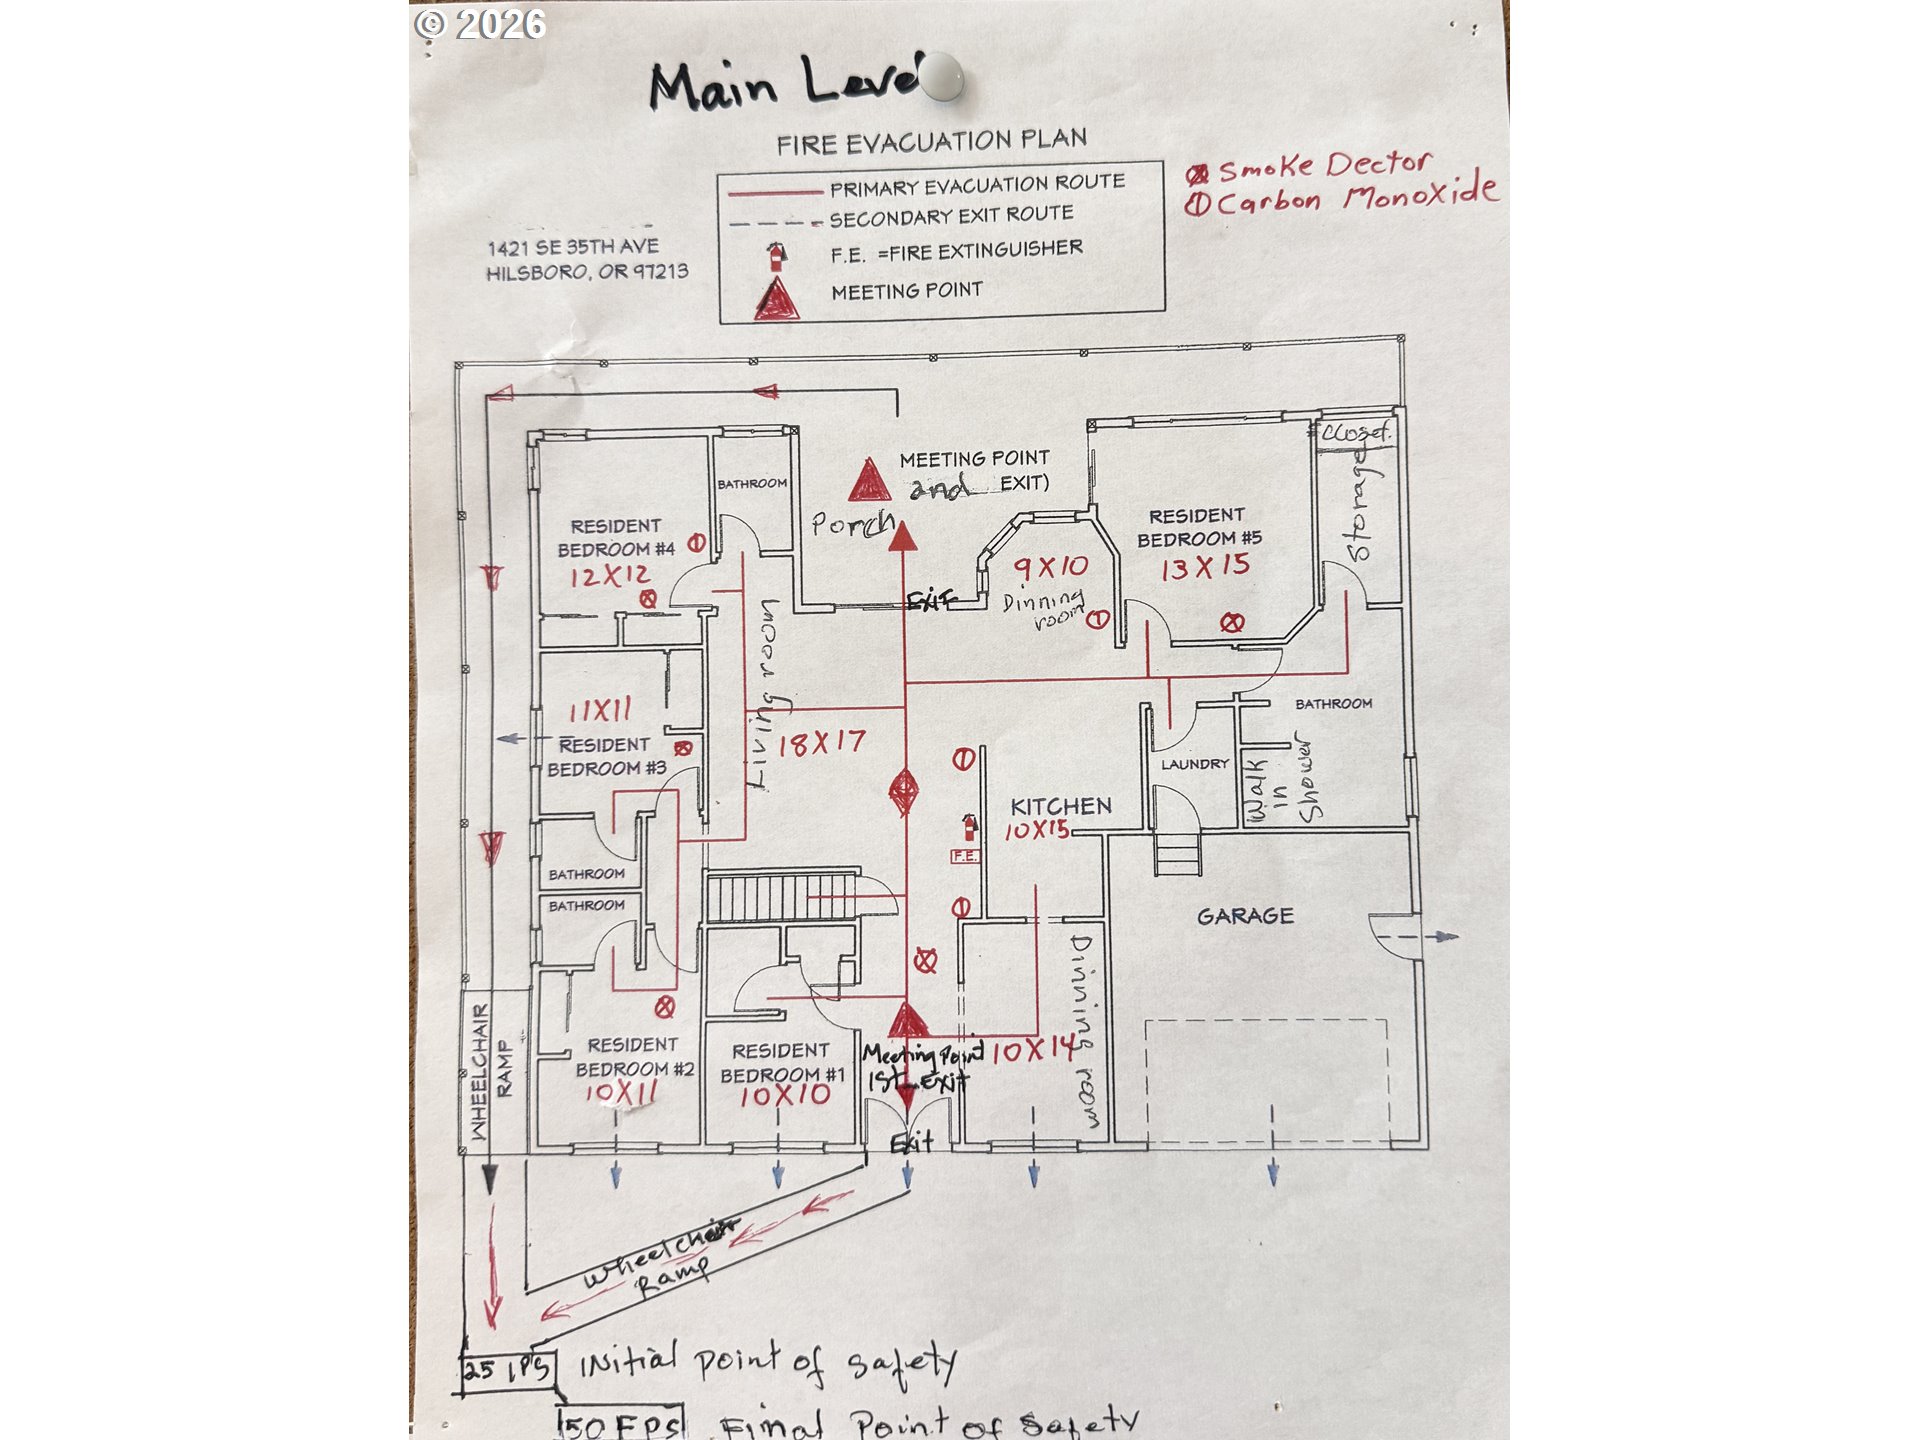 © 2026
Main Level
FIRE EVACUATION PLAN
PRIMARY EVACUATION ROUTE
SECONDARY EXIT ROUTE
F.E. =FIRE EXTINGUISHER
MEETING POINT
Smoke Dector
Carbon Monoxide
1421 SE 35TH AVE
HILSBORO, OR 97213
MEETING POINT
and EXIT)
Porch
Exit
BATHROOM
RESIDENT
BEDROOM #4
12X12
Closet
Storage
RESIDENT
BEDROOM #5
13X15
9X10
Dinning
room
Living room
18X17
11X11
RESIDENT
BEDROOM #3
BATHROOM
BATHROOM
KITCHEN
10X15
F.E.
LAUNDRY
BATHROOM
Walk
in
Shower
GARAGE
Dinning room
10X14
WHEELCHAIR
RAMP
RESIDENT
BEDROOM #2
10X11
RESIDENT
BEDROOM #1
10X10
Meeting Point
1st Exit
Exit
Wheelchair
Ramp
25 IPS Initial point of safety
150 FPS Final Point of Safety